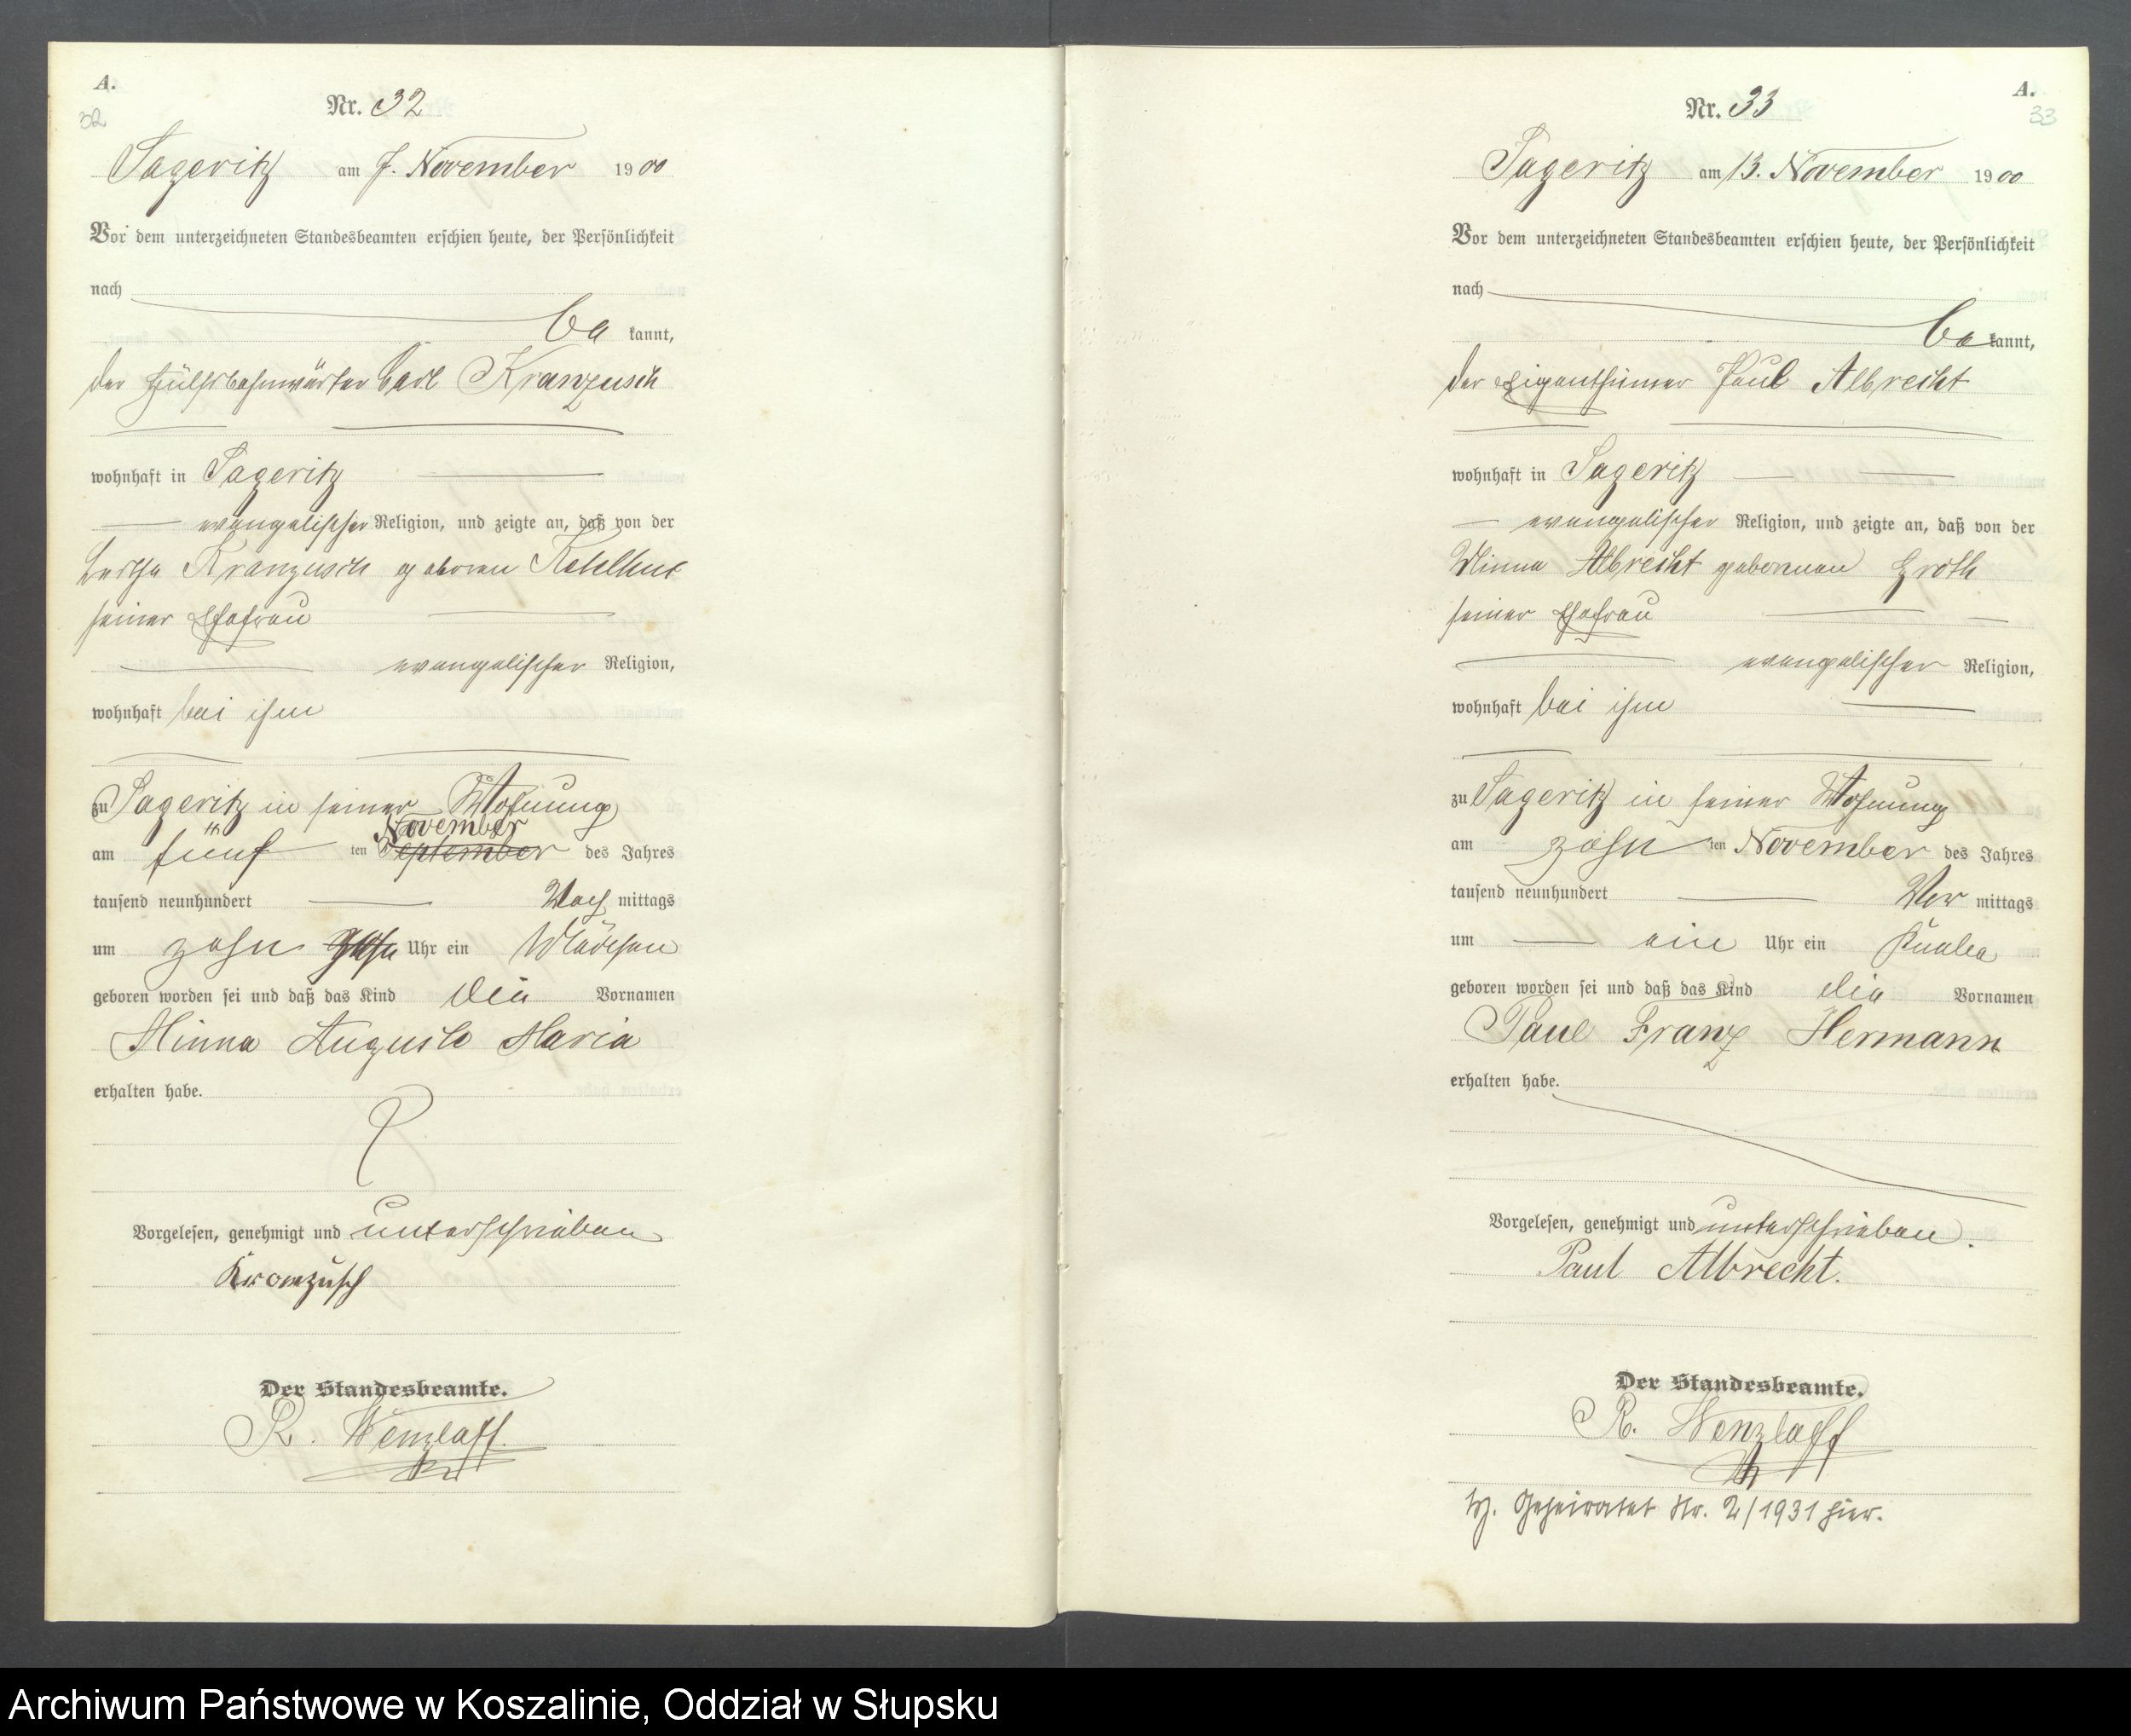 A.
32
Nr. 32
Sageritz am 7. November 1900
Vor dem unterzeichneten Standesbeamten erschien heute, der Persönlichkeit
nach
be kannt,
der Hülfsbahnwärter Carl Kranzusch
wohnhaft in Sageritz
evangelischer Religion, und zeigte an, daß von der
Bertha Kranzusch geboren
seiner Ehefrau
evangelischer Religion,
wohnhaft bei ihm
zu Sageritz in seiner Wohnung
November
am fünf ten September des Jahres
tausend neunhundert Nach mittags
um zehn zehn Uhr ein Mädchen
geboren worden sei und daß das Kind die Vornamen
Minna Auguste Maria
erhalten habe.
Vorgelesen, genehmigt und unterschrieben
Kranzusch
Der Standesbeamte.
R. Wenzlaff.
A.
33
Nr. 33
Sageritz am 13. November 1900
Vor dem unterzeichneten Standesbeamten erschien heute, der Persönlichkeit
nach
be kannt,
der Eigenthümer Paul Albrecht
wohnhaft in Sageritz
evangelischer Religion, und zeigte an, daß von der
Minna Albrecht gebornen Groth
seiner Ehefrau
evangelischer Religion,
wohnhaft bei ihm
zu Sageritz in seiner Wohnung
am zehn ten November des Jahres
tausend neunhundert Vor mittags
um ein Uhr ein Knabe
geboren worden sei und daß das Kind die Vornamen
Paul Franz Hermann
erhalten habe.
Vorgelesen, genehmigt und unterschrieben.
Paul Albrecht.
Der Standesbeamte.
R. Wenzlaff
Geheiratet Nr. 2/1931 hier.
Archiwum Państwowe w Koszalinie, Oddział w Słupsku